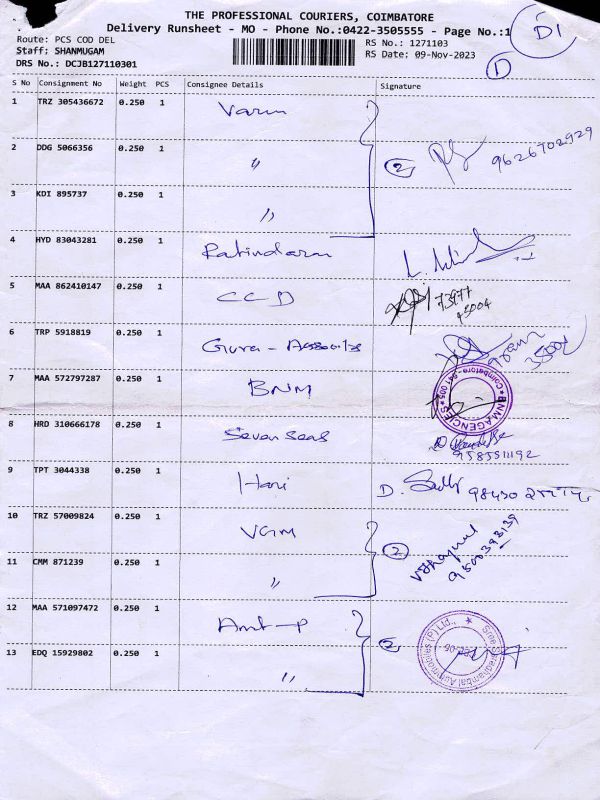 THE PROFESSIONAL COURIERS, COIMBATORE
Delivery Runsheet - MO - Phone No.:0422-3505555 - Page No.:1
D1
Route: PCS COD DEL
RS No.: 1271103
Staff: SHANMUGAM
RS Date: 09-Nov-2023
DRS No.: DCJB127110301
1
S No Consignment No Weight PCS Consignee Details Signature
1 TRZ 305436672 0.250 1 Varun
2 DDG 5066356 0.250 1 " 2 9626702929
3 KDI 895737 0.250 1 "
4 HYD 83043281 0.250 1
5 MAA 862410147 0.250 1 CCD
6 TRP 5918819 0.250 1 Guru -
7 MAA 572797287 0.250 1 BNM
BNM AGENCIES * Coimbatore - 641 005 *
8 HRD 310666178 0.250 1 Seven Seas
9 TPT 3044338 0.250 1 Hari D.
10 TRZ 57009824 0.250 1 VGM 2
11 CMM 871239 0.250 1 "
12 MAA 571097472 0.250 1 Amt-P 2
13 EDQ 15929802 0.250 1 "